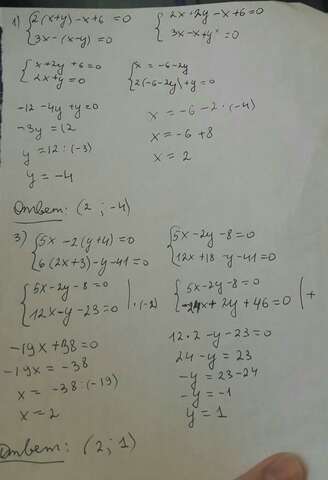 1) {2(x+y)-x+6=0
3x-(x-y)=0
{2x+2y-x+6=0
3x-x+y=0
{x+2y+6=0
2x+y=0
{x=-6-2y
2(-6-2y)+y=0
-12-4y+y=0
-3y=12
y=12:(-3)
y=-4
x=-6-2·(-4)
x=-6+8
x=2
Ответ: (2;-4)
3) {5x-2(y+4)=0
6(2x+3)-y-41=0
{5x-2y-8=0
12x+18-y-41=0
{5x-2y-8=0
12x-y-23=0 |·(-2)
{5x-2y-8=0
-24x+2y+46=0 |+
-19x+38=0
-19x=-38
x=-38:(-19)
x=2
12·2-y-23=0
24-y=23
-y=23-24
-y=-1
y=1
Ответ: (2;1)